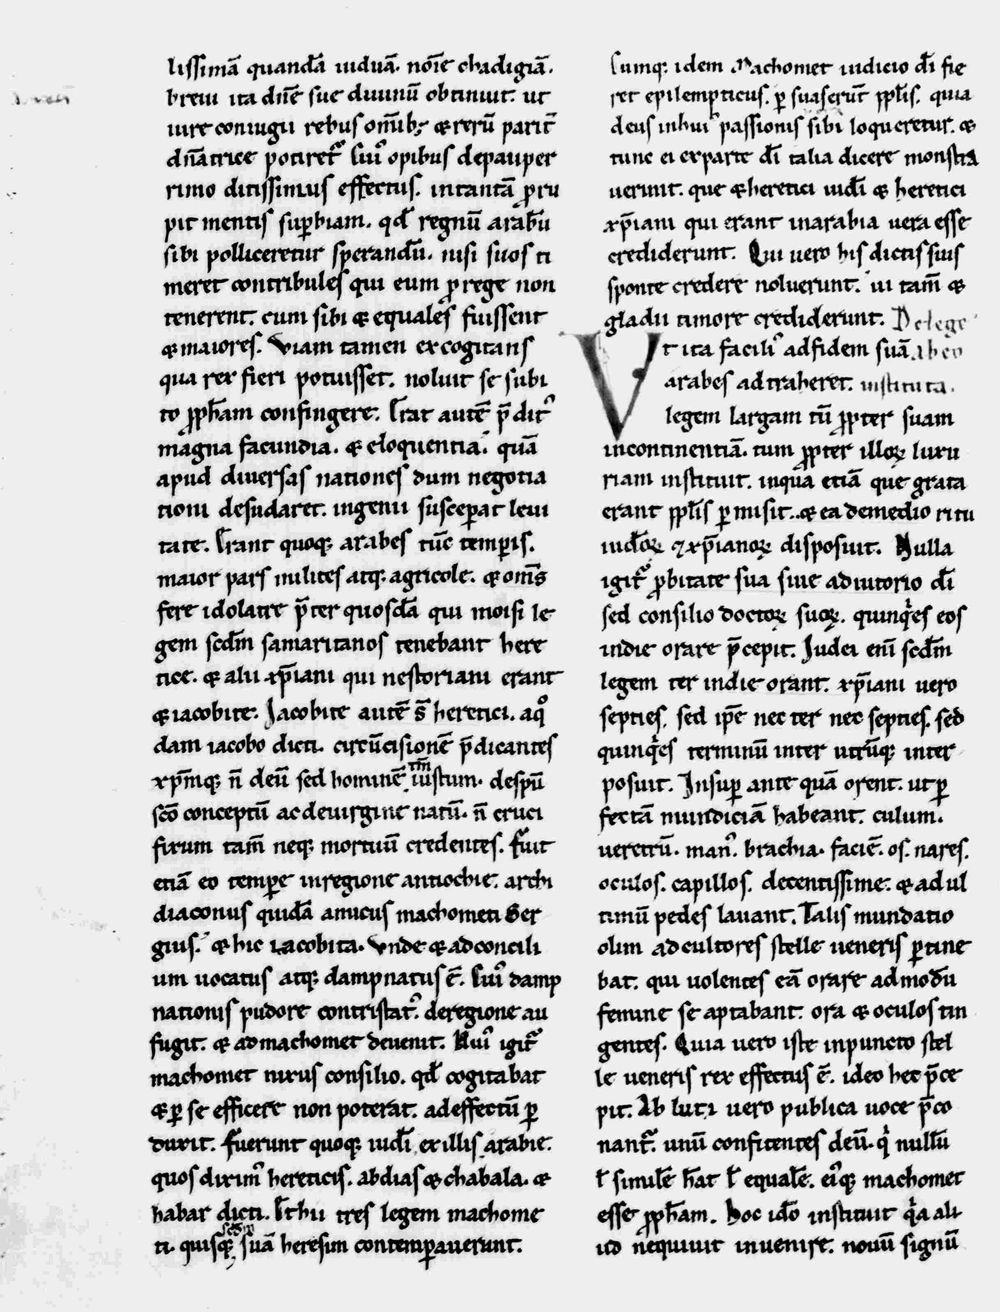 lissimā quandā uiduā. nōie chadigiā.
breui ita dn̄e sue diuinū obtinuit. ut
iure coniugii rebus om̄ib; & rerū parit̄
dn̄atrice potiret᷑. Cui᷒ opibus depauper
rimo ditissimus effectus. in tantā ꝓru
pit mentis suꝑbiam. qd̄ regnū arabū
sibi polliceretur sperandū. nisi suos ti
meret contribules qui eum ꝓ rege non
tenerent. cum sibi & equales fuissent
& maiores. Viam tamen excogitans
qua rex fieri potuisset. noluit se subi
to ꝓph̄am confingere. Erat autē p̄dit᷒
magna facundia. & eloquentia. quā
apud diuersas nationes dum negotia
tioni desudaret. ingenii susceꝑat leui
tate. Erant quoq; arabes tūc temꝑis.
maior pars milites atq; agricole. & om̄s
fere idolatre p̄ter quosdā qui moisi le
gem scd̄m samaritanos tenebant here
tice. & alii xp̄iani qui nestoriani erant
& iacobite. Jacobite autē s̄ heretici. a qͦ
dam iacobo dicti. circūcisionē p̄dicantes
xp̄mq; n̄ deū sed hominē tm̄ iustum. de sp̄u
sc̄o conceptū ac de uirgine natū. n̄ cruci
fixum tam̄ neq; mortuū credentes. Fuit
etiā eo temꝑe in regione antiochie. archi
diaconus quidā amicus machometi Ser
gius. & hic iacobita. Vnde & ad concili
um uocatus atq; dampnatus ē. Cui᷒ damp
nationis pudore contristat᷒. de regione au
fugit. & ad machomet deuenit. Hui᷒ igit᷑
machomet nixus consilio. qd̄ cogitabat
& ꝑ se efficere non poterat. ad effectū ꝑ
duxit. Fuerunt quoq; iudi̅ ex illis arabie.
quos dixim᷒ hereticis. abdias & chabala. &
habar dicti. Et hii tres legem machome
ti. quisq; scd̄m suā heresim contemꝑauerunt.
Cumq; idem Machomet iudicio di̅ fie
ret epilempticus. ꝑsuaserūt ppl̄is. quia
deus in hui᷒ passionis sibi loqueretur. &
tunc ei ex parte di̅ talia dicere monstra
uerunt. que & heretici iudi̅ & heretici
xp̄iani qui erant in arabia uera esse
crediderunt. Qui uero his dictis suis
sponte credere noluerunt. ui tam̄ &
gladii timore crediderunt. De lege
Vt ita facili᷒ ad fidem suā ab eo
arabes ad traheret. instituta.
legem largam tū ꝓpter suam
incontinentiā. tum ꝓpter illoꝝ luxu
riam instituit. in qua etiā que grata
erant ppl̄is ꝑmisit. & ea de medio ritu
iudi̅oꝝ ⁊ xp̄ianoꝝ disposuit. Nulla
igit᷑ ꝓbitate sua siue adiutorio di̅
sed consilio doctoꝝ suoꝝ. quinqͥes eos
in die orare p̄cepit. Judei eni̅ scd̄m
legem ter in die orant. xp̄iani uero
septies. sed ip̄e nec ter nec septies. sed
quinqͥes terminū inter utrūq; inter
posuit. Insuꝑ ante quā orent. ut ꝑ
fectā mundiciā habeant. culum.
ueretrū. man᷒. brachia. faciē. os. nares.
oculos. capillos. decentissime. & ad ul
timū pedes lauant. Talis mundatio
olim ad cultores stelle ueneris ꝑtine
bat. qui uolentes eā orare ad modū
femine se aptabant. ora & oculos tin
gentes. Quia uero iste in puncto stel
le ueneris rex effectus ē. ideo hec p̄ce
pit. Ab luti uero publica uoce p̄co
nant᷑. unū confitentes deū. qͥ nullū
ł simulē hāt ł equalē. ei᷒q; machomet
esse ꝓph̄am. Hoc idō instituit qͥa ali
ud nequiuit inuenire. nouū signū